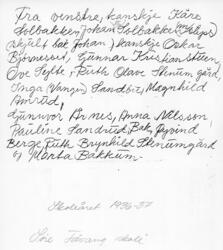 Fra venstre, kanskje Kåre
Solbakken, Johan Solbakken
skjult bak Johan, kanskje Oskar
Bjørnessvei, Gunnar Kristianstuen
Ove Fylte, Ruth Olave Stenumgård,
Inga (Vangen) Sandbu, Magnhild
Amrud,
Gunvor Arnes, Anna Nilsson,
Pauline Sandrud, Bak, Øyvind
Berge, Ruth Brynhild Stenumgård
og Marta Bakkum.
Skoleåret 1936-37
Søre Fåvang skole